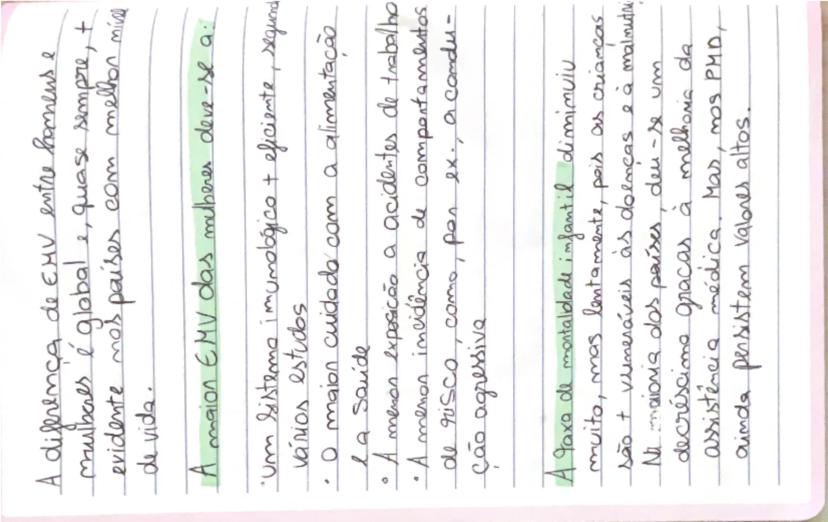 A diferença de EMV entre homens e
mulheres é global e, quase sempre, +
evidente nos países com melhor nível
de vida.
A maior EMV das mulheres deve-se a:
· um sistema imunológico + eficiente, segund
vários estudos
· o maior cuidado com a alimentação
e a saúde
· A menor exposição a acidentes de trabalho
· A menor incidência de comportamentos
de risco, como, por ex., a condu-
ção agressiva
A taxa de mortalidade infantil diminuiu
muito, mas lentamente, pois as crianças
são + vulneráveis às doenças e à malnutri
Na maioria dos países, deu-se um
decréscimo graças à melhoria da
assistência médica. Mas, nos PMD,
ainda persistem valores altos.